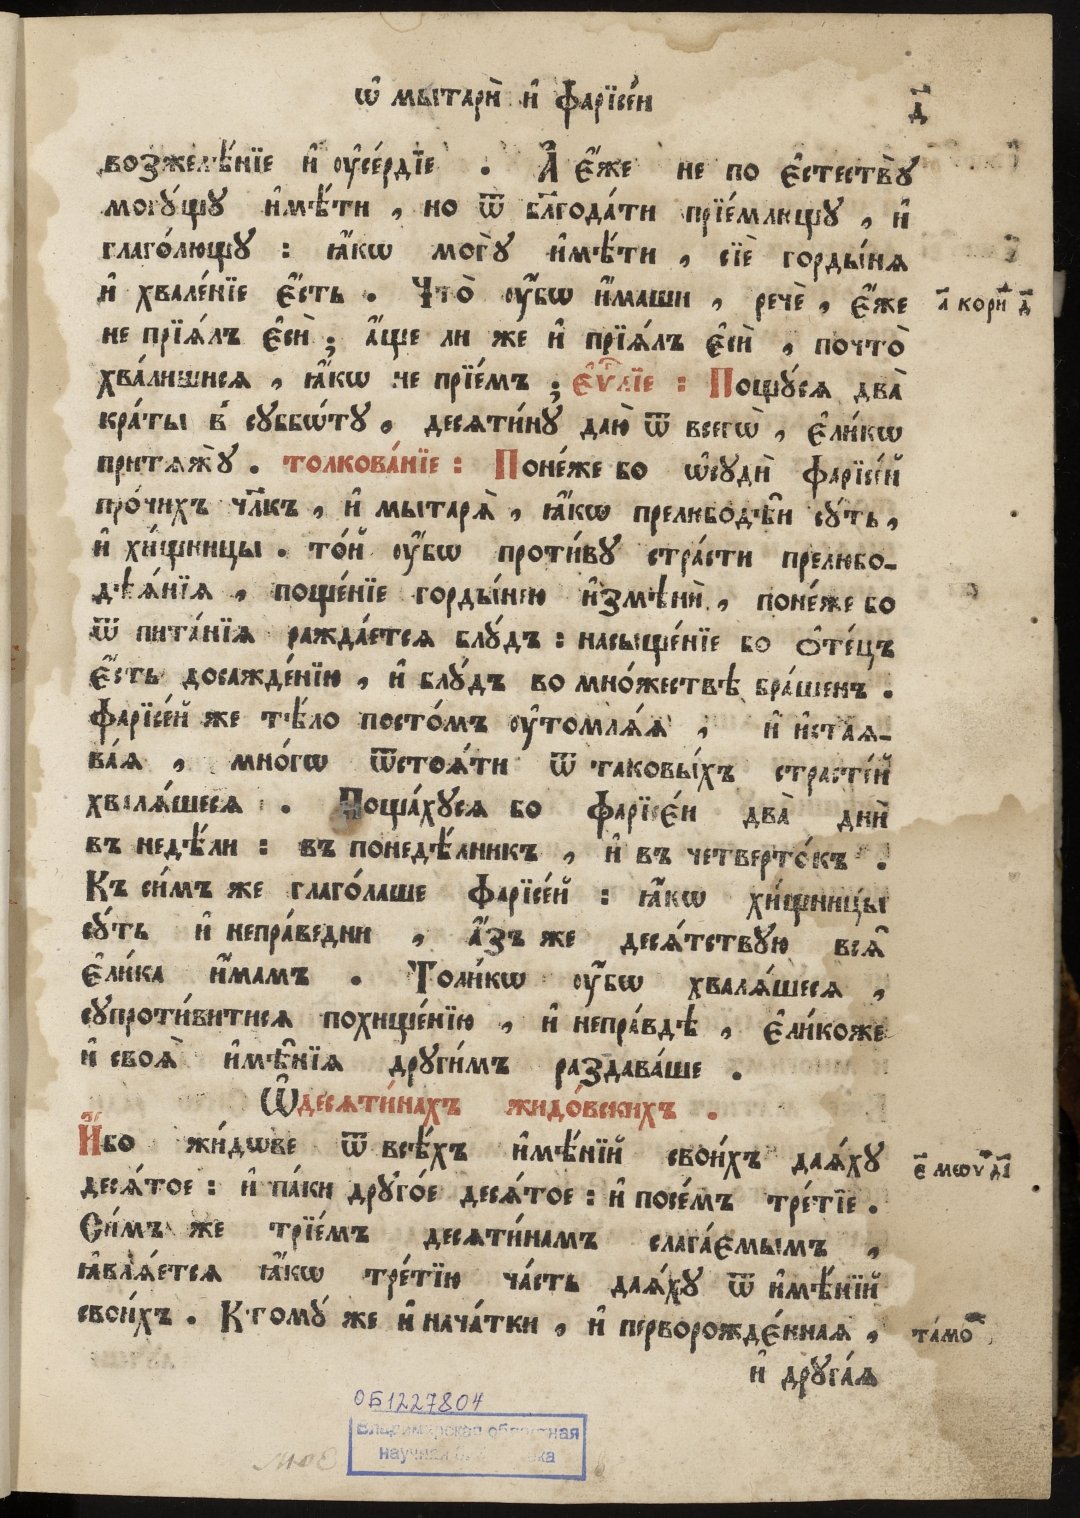 ѡ҆ мытарѝ и҆ фарїсе́и
д҃
возжелѣ́нїе и҆ ᲂу҆се́рдїе . А҆ є҆́же не по є҆стествꙋ̀
могꙋ́щꙋ и҆мѣ́ти , но ѿ бл҃года́ти прїе́млющꙋ , и҆
глаго́лющꙋ : ꙗ҆́кѡ могꙋ̀ и҆мѣ́ти , сїѐ горды́ня
и҆ хвале́нїе є҆́сть . Что̀ ᲂу҆́бѡ и҆́маши , речѐ , є҆́же
а҃ кори́н д҃
не прїѧ́лъ є҆сѝ ; а҆́ще ли же и҆ прїѧ́лъ є҆сѝ , почто̀
хва́лишисѧ , ꙗ҆́кѡ не прїе́мъ ; є҆ѵⷢ҇лїе : Пощꙋ́сѧ два̀
кра́ты в̾ сꙋббѡ́тꙋ . десѧти́нꙋ даю̀ ѿ всегѡ̀ , є҆ли́кѡ
притѧжꙋ̀ . толкова́нїе : Поне́же бо ѡ҆сꙋдѝ фарїсе́й
про́чихъ чл҃къ , и҆ мытарѧ̀ , ꙗ҆́кѡ прелюбодѣ́и сꙋ́ть ,
и҆ хи́щницы . то́й ᲂу҆́бѡ проти́вꙋ стра́сти прелюбо-
дѣѧ́нїѧ , поще́нїе горды́нею и҆змѣнѝ , поне́же бо
ѿ пита́нїѧ ражда́етсѧ блꙋ́дъ : насыще́нїе бо ѻ҆те́цъ
є҆́сть досажде́нїю , и҆ блꙋ́дъ во мно́жествѣ бра́шенъ .
фарїсе́й же тѣ́ло посто́мъ ᲂу҆томлѧ́ѧ , и҆ и҆стаѧ-
ва́ѧ , мно́гѡ ѿстоѧ́ти ѿ таковы́хъ страсте́й
хвалѧ́шесѧ . Поща́хꙋсѧ бо фарїсе́и два̀ днѝ
въ недѣ́ли : въ понедѣ́лникъ , и҆ въ четверто́къ .
Къ си́мъ же глаго́лаше фарїсе́й : ꙗ҆́кѡ хи́щницы
сꙋ́ть и҆ непра́ведни , а҆́зъ же десѧ́тствꙋю всѧ̑
є҆ли́ка и҆́мамъ . Толи́кѡ ᲂу҆́бѡ хвалѧ́шесѧ ,
сꙋпроти́витисѧ похище́нїю , и҆ непра́вдѣ , є҆ли́коже
и҆ своѧ̀ и҆мѣ̑нїѧ други́мъ раздава́ше .
Ѡ҆десѧти́нахъ жидо́вскихъ .
И҆́бо жи́дѡве ѿ всѣ́хъ и҆мѣ́нїй свои́хъ даѧ́хꙋ
є҃ мѡѵ҃ д҃і
десѧ́тое : и҆ па́ки дрꙋго́е десѧ́тое : и҆ посе́мъ тре́тїе .
Си́мъ же трїе́мъ десѧти́намъ слага́ємымъ ,
ꙗ҆влѧ́етсѧ ꙗ҆́кѡ тре́тїю ча́сть даѧ́хꙋ ѿ и҆мѣ́нїй
свои́хъ . К томꙋ́ же и҆ нача́тки , и҆ первородже́ннаѧ ,
та́мо
и҆ дрꙋга́ѧ
ОБ1227804
Владимирская областная
научная библиотека